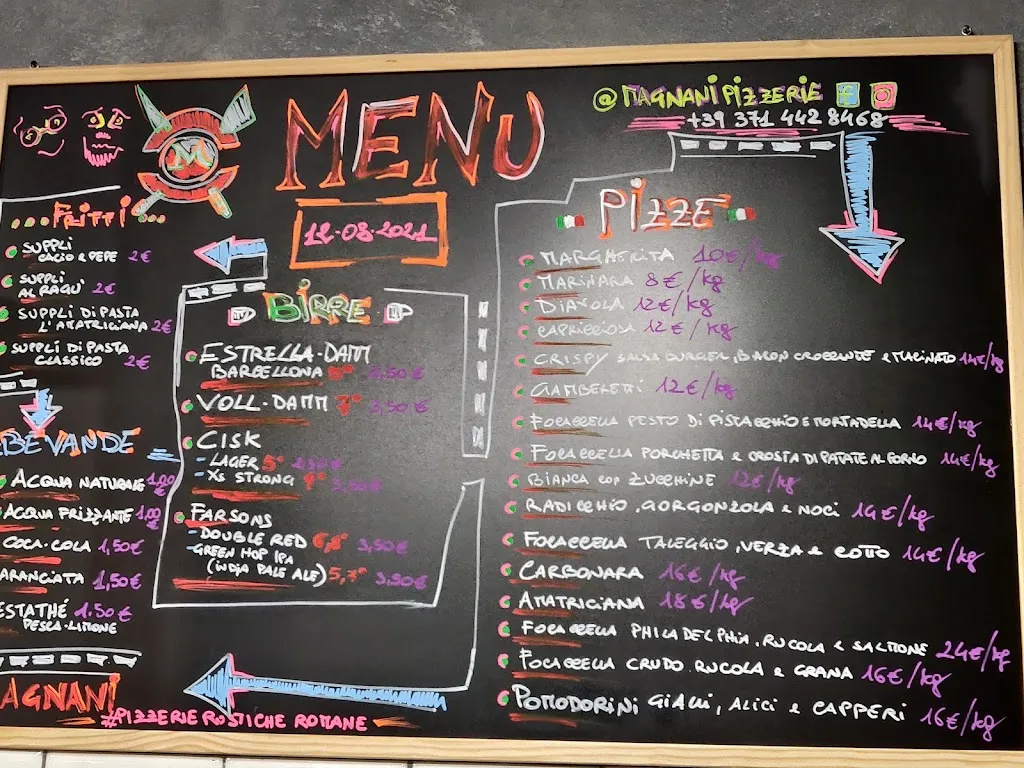 MENU
12.08.2021
@MAGNANIPIZZERIE
+39 371 442 8468
M
...FRITTI...
SUPPLI
CACIO e PEPE 2€
SUPPLI
AL RAGU' 2€
SUPPLI DI PASTA
L'AMATRICIANA 2€
SUPPLI DI PASTA
CLASSICO 2€
BEVANDE
ACQUA NATURALE 1,00€
ACQUA FRIZZANTE 1,00€
COCA-COLA 1,50€
ARANCIATA 1,50€
ESTATHÉ 1.50€
PESCA-LIMONE
BIRRE
ESTRELLA-DAMM
BARCELLONA
VOLL-DAMM 7° 3,50€
CISK
- LAGER 5°
- XS STRONG 9°
FARSONS
- DOUBLE RED 6,6° 3,50€
- GREEN HOP IPA
(INDIA PALE ALE) 5,7° 3,50€
PIZZE
MARGHERITA 10€/kg
MARINARA 8€/kg
DIAVOLA 12€/kg
CAPRICCIOSA 12€/kg
CRISPY SALSA BURGER, BACON CROCCANTE e MACINATO 14€/kg
GAMBERETTI 12€/kg
FOCACCELLA PESTO DI PISTACCHIO E MORTADELLA 14€/kg
FOCACCELLA PORCHETTA e CROSTA DI PATATE AL FORNO 14€/kg
BIANCA con ZUCCHINE 12€/kg
RADICCHIO, GORGONZOLA e NOCI 14€/kg
FOCACCELLA TALEGGIO, VERZA e COTTO 14€/kg
CARBONARA 16€/kg
AMATRICIANA 18€/kg
FOCACCELLA PHILADELPHIA, RUCOLA e SALMONE 24€/kg
FOCACCELLA CRUDO RUCOLA e GRANA 16€/kg
POMODORINI GIALLI, ALICI e CAPPERI 16€/kg
AGNANI
#PIZZERIE RUSTICHE ROMANE